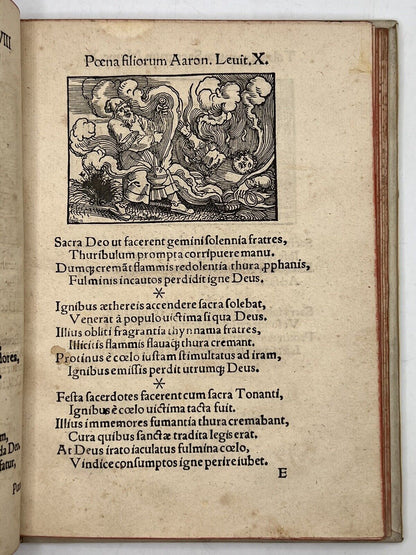 VIII
Pœna filiorum Aaron. Levit. X.
Sacra Deo ut facerent gemini solennia fratres,
Thuribulum prompta corripuere manu.
Dumq; cremãt flammis redolentia thura, ꝓphanis,
Fulminis incautos perdidit igne Deus.
*
Ignibus æthereis accendere sacra solebat,
Venerat à populo uictima si qua Deus.
Illius obliti fragrantia thynnama fratres,
Illicitis flammis flauaq; thura cremant.
Protinus è cœlo iustam stimultatus ad iram,
Ignibus emissis perdit utrumq; Deus.
*
Festa sacerdotes facerent cum sacra Tonanti,
Ignibus è cœlo uictima tacta fuit.
Illius immemores fumantia thura cremabant,
Cura quibus sanctæ tradita legis erat.
At Deus irato iaculatus fulmina cœlo,
Vindice consumptos igne perire iubet.
E